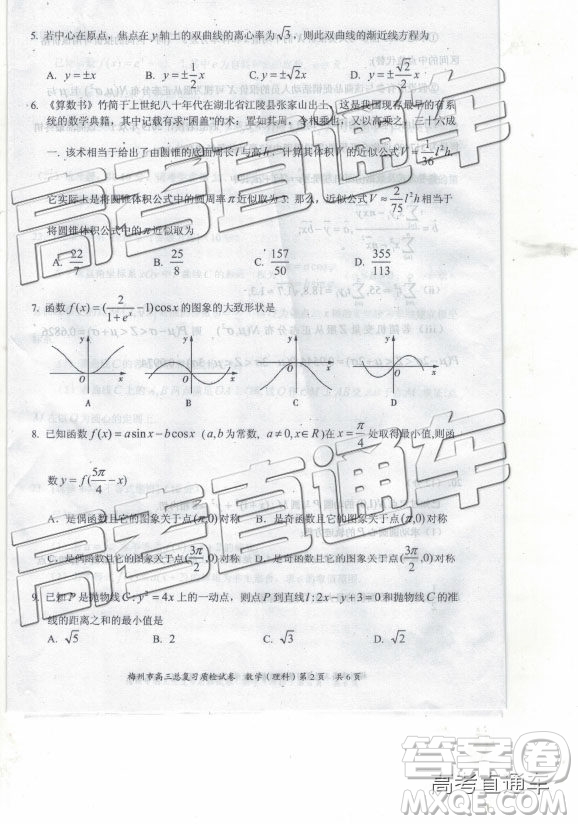 5. 若中心在原点，焦点在 y 轴上的双曲线的离心率为 √3，则此双曲线的渐近线方程为
A. y = ±x B. y = ±(√2/2)x C. y = ±√2x D. y = ±(√2/2)x
6. 《算数书》竹简于上世纪八十年代在湖北省江陵县张家山出土，这是我国现存最早的有系
统的数学典籍，其中记载有求“囷盖”的术：置如其周，令相乘也，又以高乘之，三十六成
一. 该术相当于给出了由圆锥的底面周长 l 与高 h，计算其体积 V 的近似公式 V ≈ (1/36)l²h
它实际上是将圆锥体积公式中的圆周率 π 近似取为 3. 那么，近似公式 V ≈ (2/75)l²h 相当于
将圆锥体积公式中的 π 近似取为
A. 22/7 B. 25/8 C. 157/50 D. 355/113
7. 函数 f(x) = (2/(1+eˣ) − 1)cos x 的图象的大致形状是
y y y y
O x O x O x O x
A B C D
8. 已知函数 f(x) = a sin x − b cos x (a,b 为常数, a ≠ 0, x ∈ R) 在 x = π/4 处取得最小值,则函
数 y = f(5π/4 − x)
A. 是偶函数且它的图象关于点(π,0)对称 B. 是奇函数且它的图象关于点(π,0)对称
C. 是偶函数且它的图象关于点(3π/2,0)对称 D. 是奇函数且它的图象关于点(3π/2,0)对称
9. 已知 P 是抛物线 C: y² = 4x 上的一动点，则点 P 到直线 l: 2x − y + 3 = 0 和抛物线 C 的准
线的距离之和的最小值是
A. √5 B. 2 C. D. √2
梅州市高三总复习质检试卷 数学（理科）第 2 页 共 6 页
高考直通车
高考直通车
答案圈
高考直通车
MXQE.COM